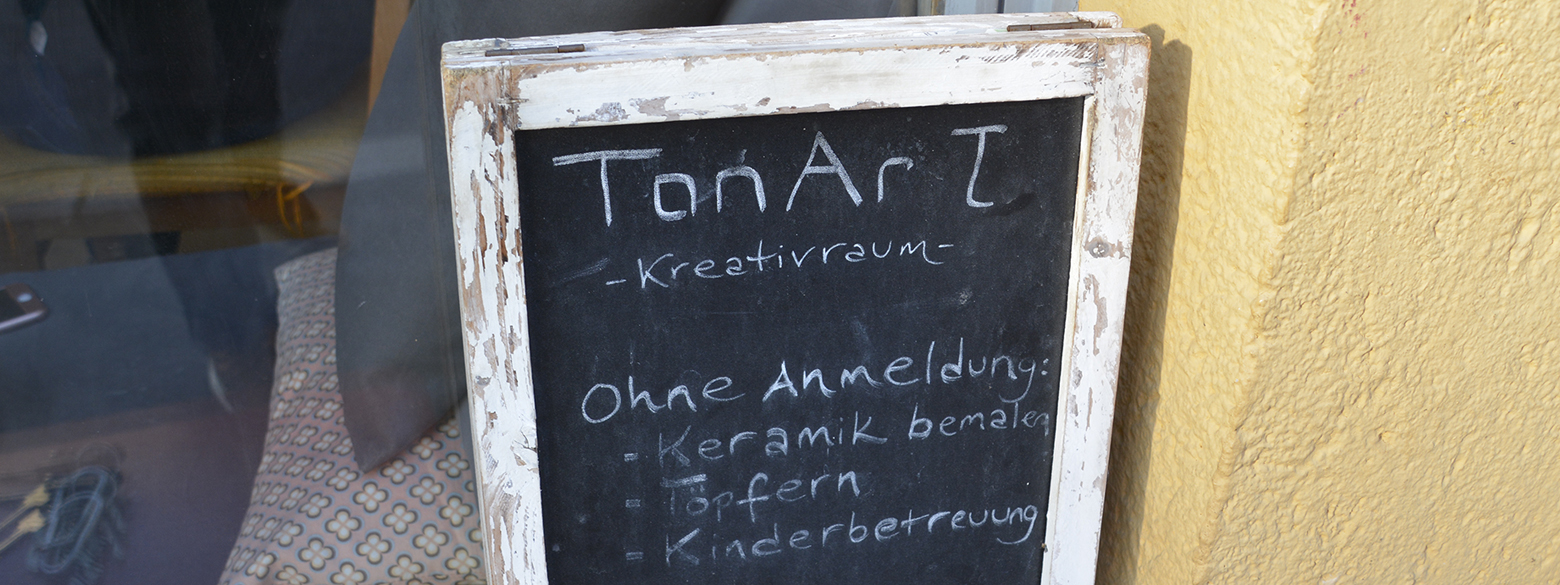 TonArT
-Kreativraum-
Ohne Anmeldung:
- Keramik bemalen
- Töpfern
- Kinderbetreuung